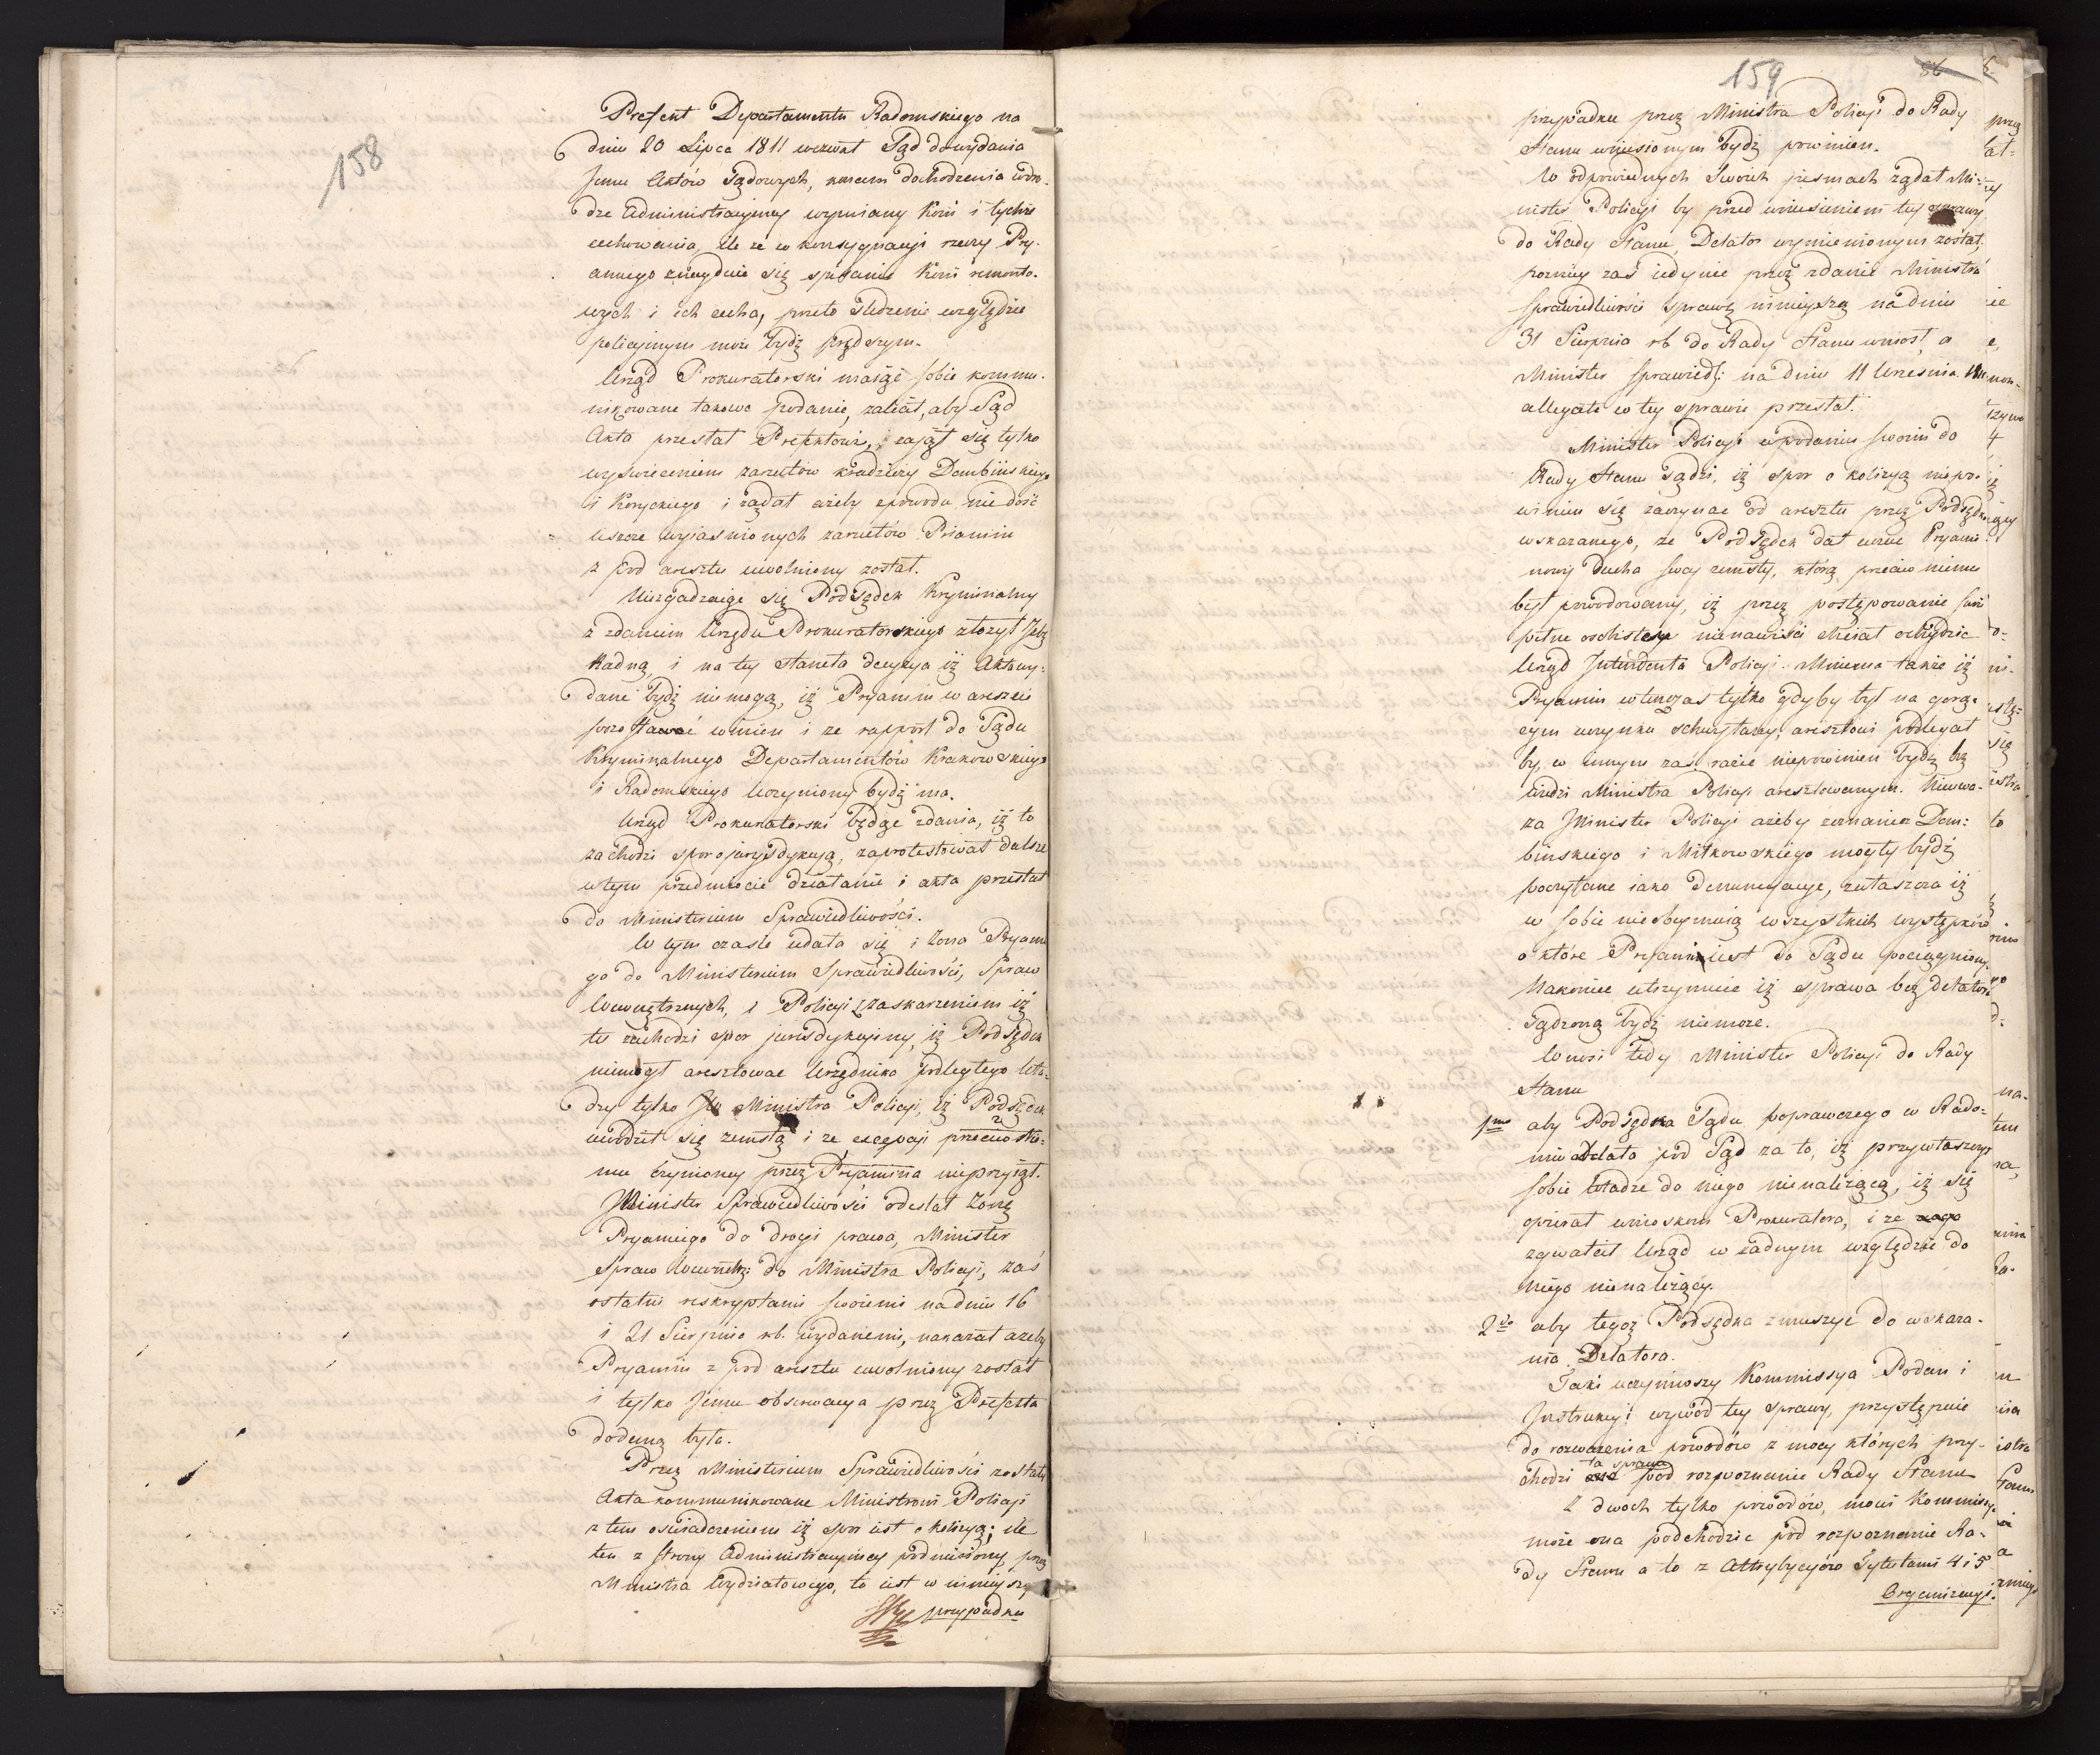 158
Prefekt Departamentu Radomskiego na
dniu 20 Lipca 1811 wezwał Sąd do wydania
Jemu Aktów Sądowych, końcem dochodzenia w dro-
dze Administracyiney wymiany Koni i tychże
cechowania, ile że w konsygnacyi rzeczy Pry-
amiego znayduie się spisanie Koni remonto-
wych i ich cecha, przeto śledzenie względzie
policyinym może bydź prędszym.
Urząd Prokuratorski maiąc sobie kommu-
nikowane takowe podanie, zalecał, aby Sąd
Akta przesłał Prefektowi, zaiął się tylko
wyświeceniem zarzutów kradzieży Dembińskiego
i Koryckiego i żądał ażeby z powodu nie dość
ieszcze wyiaśnionych zarzutów Priamin
z pod aresztu uwolniony został.
Niezgadzaiąc się Podsędek Kryminalny
z zdaniem Urzędu Prokuratorskiego złożył Jzbę
Radną, i na tey stanęła decyzya iż Akta wy-
dane bydź niemogą, iż Pryamin w areszcie
pozostawać winien i że rapport do Sądu
Kryminalnego Departamentów Krakowskiego
i Radomskiego uczyniony bydź ma.
Urząd Prokuratorski będąc zdania, iż to
zachodzi spor o juryzdykcyą, zaprotestował dalsze
w tym przedmiocie działanie i akta przesłał
do Ministerium Sprawiedliwości.
W tym czasie udała się i Żona Pryami
go do Ministerium Sprawiedliwości, Spraw
Wewnętrznych, i Policyi z zaskarżeniem iż
tu zachodzi spor jurisdykcyiny, iż Podsędek
niemógł aresztować Urzędnika podległego wła-
dzy tylko JW Ministra Policyi, iż Podsędek
uwodził się zemstą i że excepcyi przeciwko
mu czynioney przez Pryamina nieprzyiął.
Minister Sprawiedliwości odesłał Żonę
Pryamiego do drogi prawa, Minister
Spraw Wewnętrz: do Ministra Policyi, zaś
ostatni reskryptami swoiemi na dniu 16
i 21 Sierpnia rb. wydanemi, nakazał ażeby
Pryamin z pod aresztu uwolniony został
i tylko Jemu obserwacya przez Prefekta
dodaną była.
Przez Ministerium Sprawiedliwości zostały
Akta kommunikowane Ministrowi Policyi
z tem oświadczeniem iż spor iest o kolizyą; ile
ten z strony Administracyiney podniesiony przez
Ministra Wydziałowego, to iest w ninieyszym
przypadku
159
86
przypadku przez Ministra Policyi do Rady
Stanu wniesionym bydź powinien.
W odpowiednych Swoich pismach żądał Mi-
nister Policyi by przed wniesieniem tey sprawy
do Rady Stanu, Delator wymienionym został,
pozniey zaś iedynie przez zdanie Ministra
Sprawiedliwości Sprawę ninieyszą na dniu
31 Sierpnia rb do Rady Stanu wniosł, a
Minister Sprawiedl: na dniu 11 Września
allegata w tey sprawie przesłał.
Minister Policyi w podaniu swoim do
Rady Stanu sądzi, iż spor o kolizyą niepo-
winien się zaczynać od aresztu przez Podsędka
wskazanego, że Podsędek dał uczuć Pryami-
nowi ducha swey zemsty, którą przeciw niemu
był powodowany, iż przez postępowanie
pełne osobistey nienawiści chciał ochydzić
Urząd Intendenta Policyi. Mniema także iż
Pryamin wtenczas tylko gdyby był na gorą-
cym uczynku schwytany, aresztowi podlegał
by, w innym zaś razie niepowinien bydź bez
wiedzi Ministra Policyi aresztowanym. Nieuwa-
ża Minister Policyi ażeby zeznania Dem:
bińskiego i Mitkowskiego mogły bydź
poczytane iako denuncyacye, zwłaszcza iż
w sobie nieobeymuią wszystkich występków
o które Pryamin iest do Sądu pociągniony.
Nakoniec utrzymuie iż sprawa bez delatora
Sądzoną bydź niemoże.
Wnosi tedy Minister Policyi do Rady
Stanu
1mo aby Podsędka Sądu poprawczego w Rado-
miu oddała pod Sąd za to, iż przywłaszczył
sobie władze do niego nienależącą, iż się
opierał wnioskom Prokuratora, i że
zgwałcił Urząd w żadnym względzie do
niego nienależący.
2do aby tegoż Podsędka zmuszyć do wskaza-
nia Delatora.
Taki uczyniwszy Kommissya Podań i
Instrukcyi wywód tey sprawy, przystępuie
do rozważenia powodów z mocy których przy-
chodzi ta sprawa pod rozpoznanie Rady Stanu
Z dwoch tylko powodów, mowi Kommissya
może ona podchodzić pod rozpoznanie Ra-
dy Stanu a to z Attrybucyów Tytułami 4 i 5
Organizacyi.